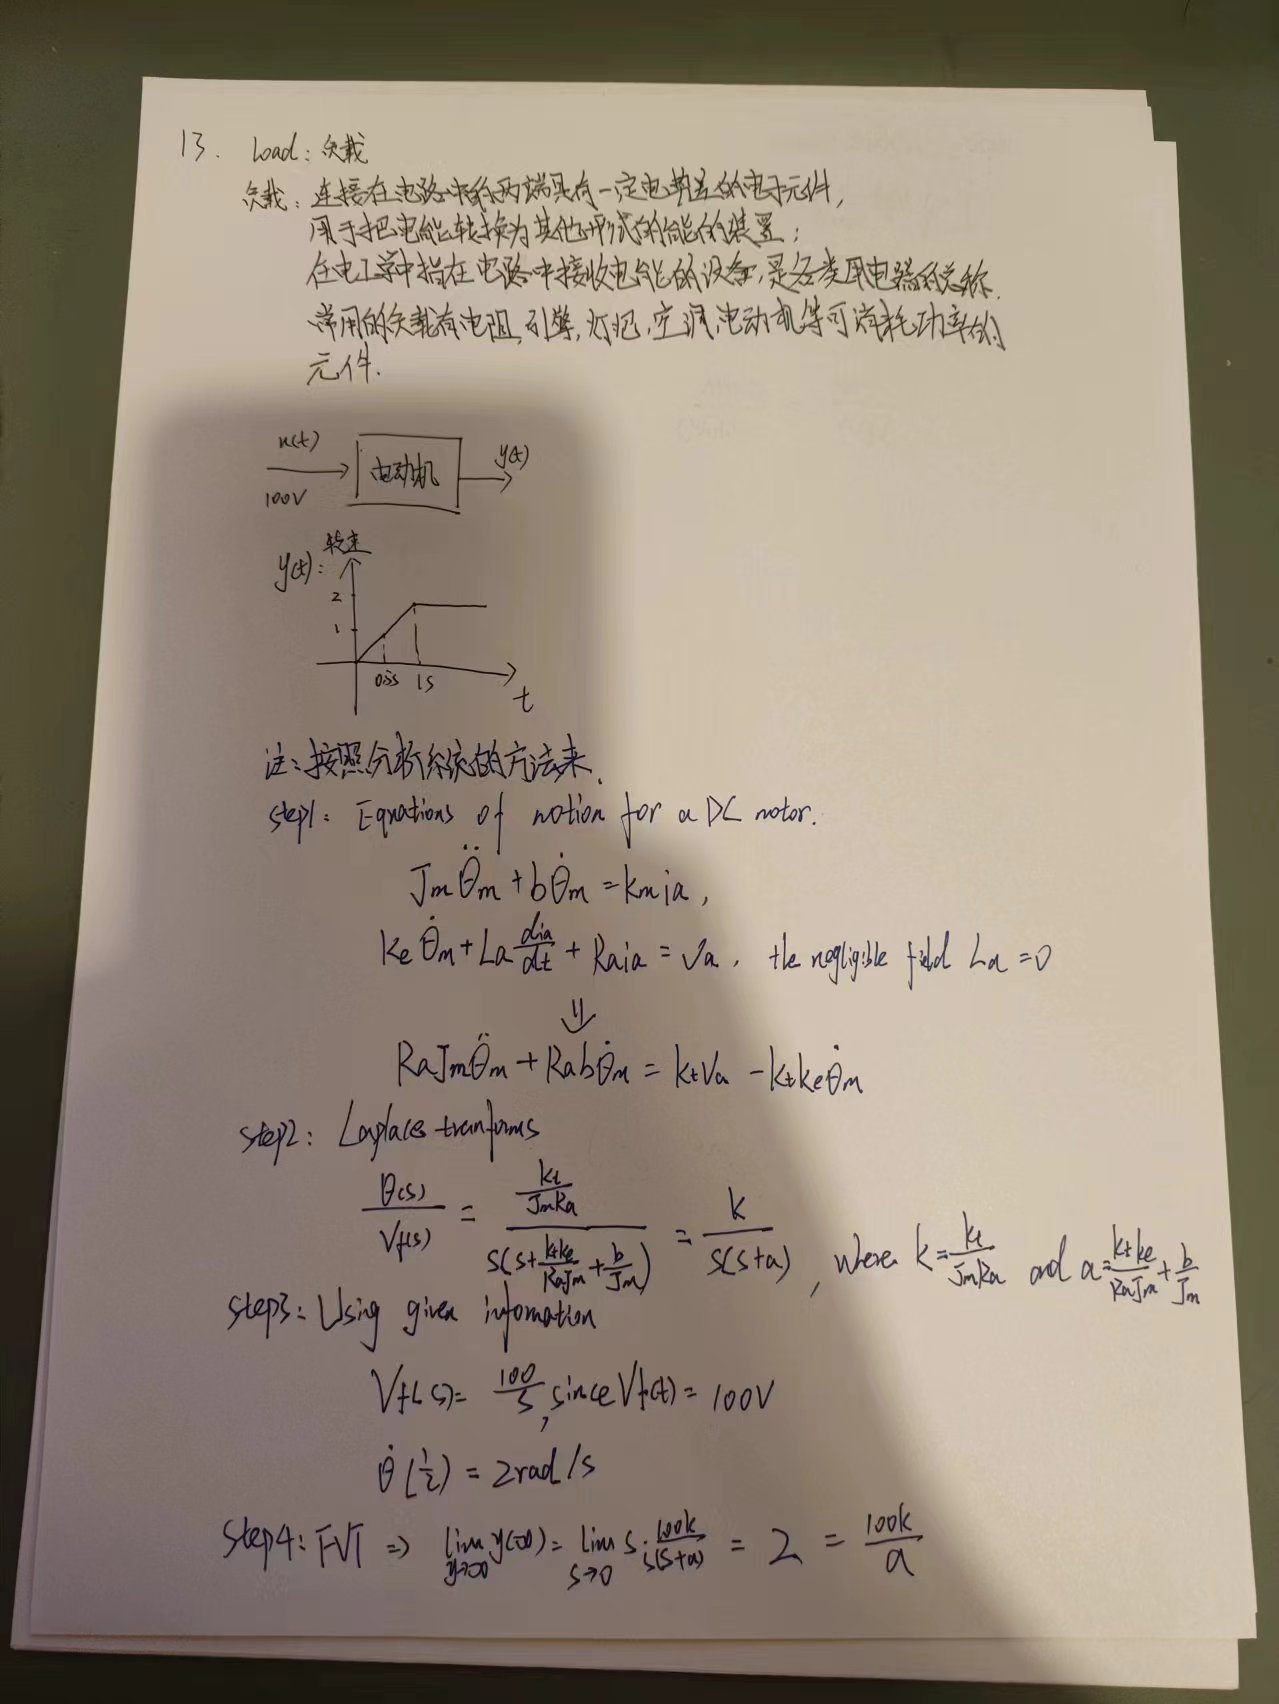 13. Load: 负载
负载: 连接在电路中的两端具有一定电势差的电子元件,
用于把电能转换为其他形式的能的装置;
在电工学中指在电路中接收电能的设备,是各类用电器的总称.
常用的负载有电阻,引擎,灯泡,空调,电动机等可消耗功率的
元件.
u(t)
100V
电动机
y(t)
y(t):
转速
2
1
0.5s 1s
t
注:按照分析系统的方法来.
step1: Equations of motion for a DC motor.
Jmθ̈m + bθ̇m = kmia,
Keθ̇m + La dia/dt + Raia = Va, the negligible field La = 0
⇓
RaJmθ̈m + Rabθ̇m = ktVa - ktkeθ̇m
step2: Laplaces tranforms
θ(s)/Vf(s) = (kt/JmRa)/(s(s+ktke/RaJm+b/Jm)) = k/s(s+a), where k=kt/JmRa and a=ktke/RaJm+b/Jm
step3: Using given infomation
Vf(s)= 100/s, since Vf(t) = 100V
θ̇(1/2) = 2rad/s
step4: FVT ⇒ lim y→∞ y(∞) = lim s→0 s·100k/s(s+a) = 2 = 100k/a